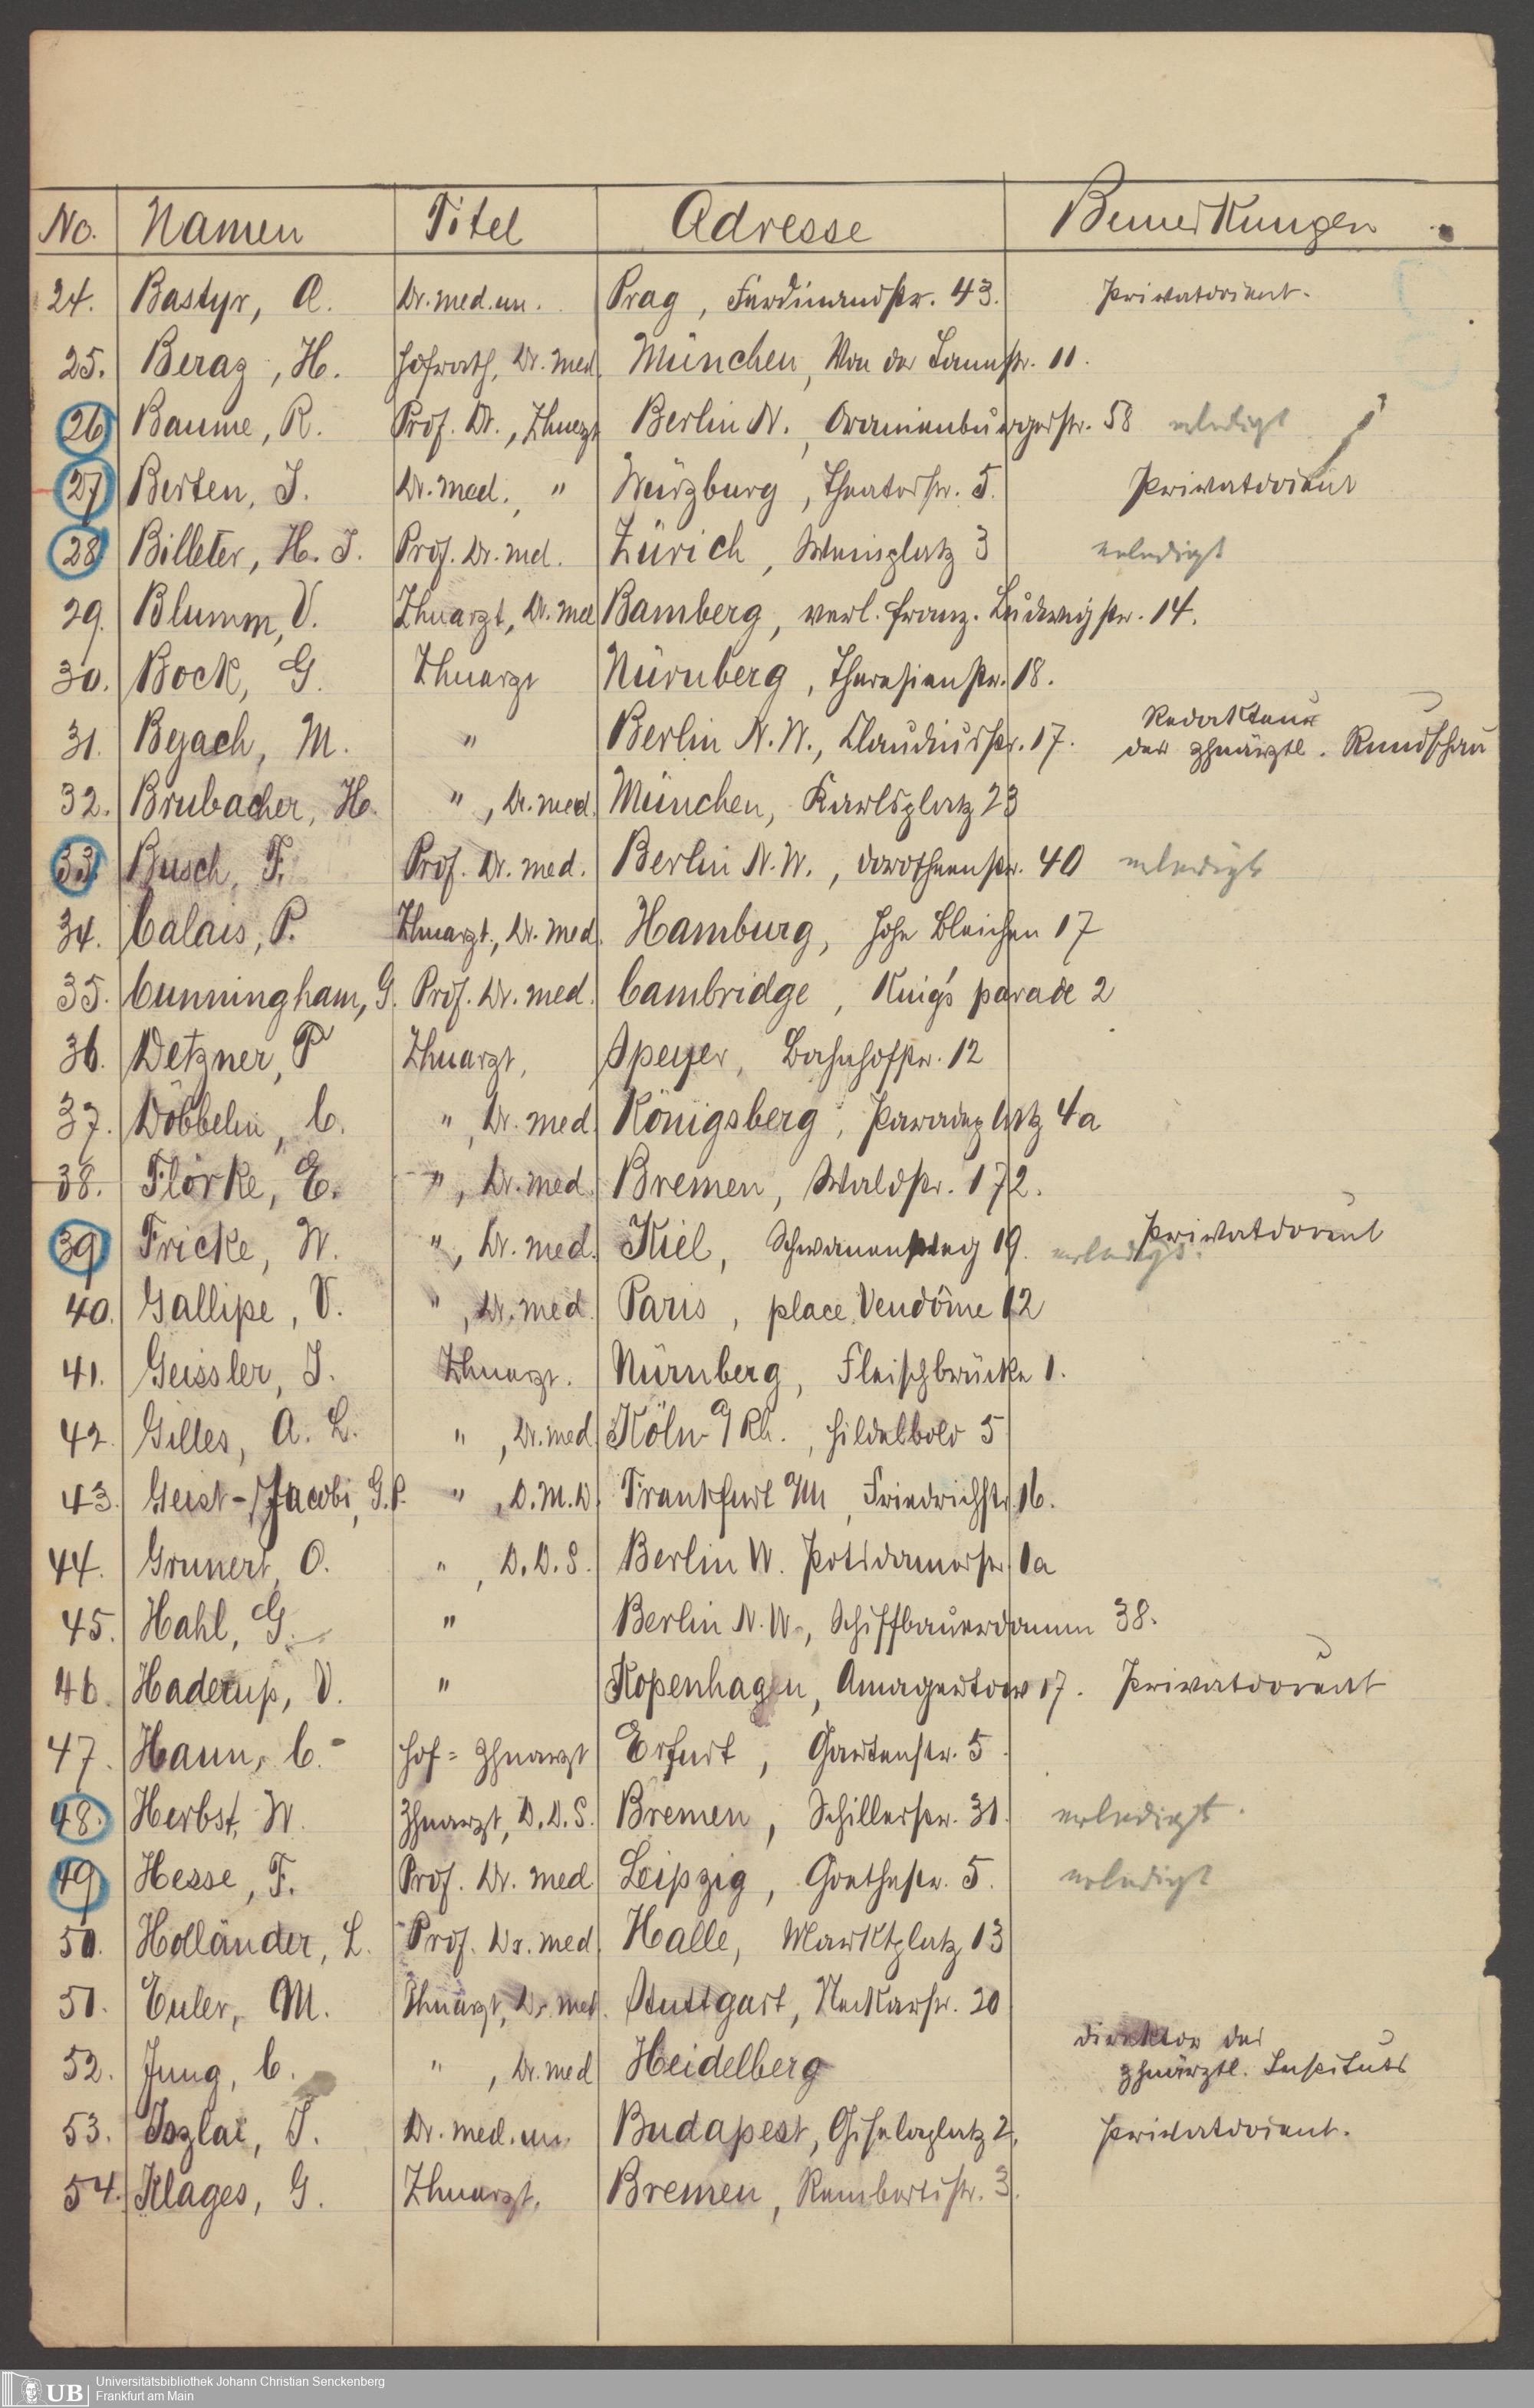 No. Namen Titel Adresse Bemerkungen
24. Bastyr, A. Dr. med. un. Prag, Ferdinandstr. 43. Privatdozent.
25. Beraz, H. Hofrath, Dr. med. München, Von der Tannstr. 11.
26 Baume, R. Prof. Dr., Zhnarzt Berlin N., Oranienburgerstr. 58 erledigt
27 Berten, J. Dr. med., " Würzburg, Theaterstr. 5. Privatdozent
28 Billeter, H. J. Prof. Dr. med. Zürich, Weinplatz 3 erledigt
29. Blumm, V. Zhnarzt, Dr. med Bamberg, verl. Franz. Ludwigstr. 14.
30. Bock, G. Zhnarzt Nürnberg, Theresienstr. 18.
31. Bejach, M. " Berlin N.W., Claudiusstr. 17. Redakteur
der zhnärztl. Rundschau
32. Brubacher, H. ", Dr. med. München, Karlsplatz 23
33 Busch, F. Prof. Dr. med. Berlin N.W., Dorotheenstr. 40 erledigt
34. Calais, P. Zhnarzt., Dr. med. Hamburg, Hohe Bleichen 17
35. Cunningham, G. Prof. Dr. med. Cambridge, King's parade 2
36. Detzner, P Zhnarzt, Speyer, Bahnhofstr. 12
37. Döbbelin, C. ", Dr. med. Königsberg, Paradeplatz 4a
38. Flörke, E. ", Dr. med. Bremen, Waldstr. 172.
39 Fricke, W. ", Dr. med. Kiel, Schwanenweg 19. erledigt. Privatdozent
40. Gallipe, V. ", Dr. med. Paris, place Vendôme 12
41. Geissler, J. Zhnarzt. Nürnberg, Fleischbrücke 1.
42. Gilles, A. L. ", Dr. med. Köln a/Rh., Hildebold 5
43. Geist-Jacobi, G.P. ", D.M.D. Frankfurt a/M, Friedrichstr. 16.
44. Grunert, O. ", D.D.S. Berlin W. Potsdamerstr. 1a
45. Hahl, G. " Berlin N.W., Schiffbauerdamm 38.
46. Haderup, V. " Kopenhagen, Amagertorv 17. Privatdozent
47. Haun, C. Hof-Zhnarzt Erfurt, Gartenstr. 5.
48. Herbst, W. Zhnarzt, D.D.S. Bremen, Schillerstr. 31. erledigt.
49 Hesse, F. Prof. Dr. med Leipzig, Goethestr. 5. erledigt
50. Holländer, L. Prof. Dr. med. Halle, Marktplatz 13
51. Euler, M. Zhnarzt, Dr. med. Stuttgart, Neckarstr. 20
52. Jung, C. ", Dr. med Heidelberg Direktor des
zhnärztl. Instituts
53. Iszlai, J. Dr. med. un. Budapest, Giselaplatz 2, Privatdozent.
54. Klages, G. Zhnarzt. Bremen, Rembertistr. 3.
UB Universitätsbibliothek Johann Christian Senckenberg
Frankfurt am Main